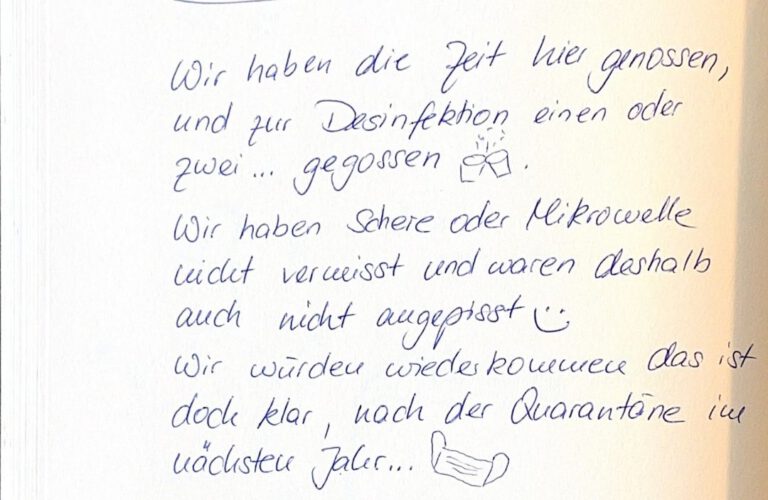 Wir haben die Zeit hier genossen,
und zur Desinfektion einen oder
zwei... gegossen.
Wir haben Schere oder Mikrowelle
nicht vermisst und waren deshalb
auch nicht angepisst
Wir würden wiederkommen das ist
doch klar, nach der Quarantäne im
nächsten Jahr...